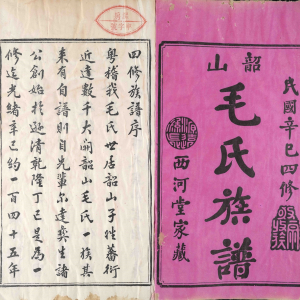 民國辛巳四修
韶山
毛氏族譜
西河堂家藏
四修族譜序
粵稽我毛氏世居韶山子姓蕃衍
近達數千大哉韶山毛氏一族其
來有自譜則自先輩爾達奕生諸
公創始於遜清乾隆丁巳是為一
修迄光緒辛巳約一百四十五年